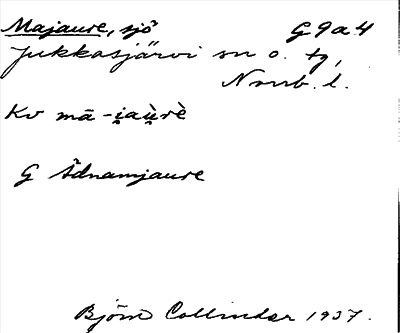 Majaure, sjö G9a4
Jukkasjärvi sn o. tg,
Nrrb. l.
Kv mā-i̯au̯rè
G Ädnamjaure
Björn Collinder 1937.